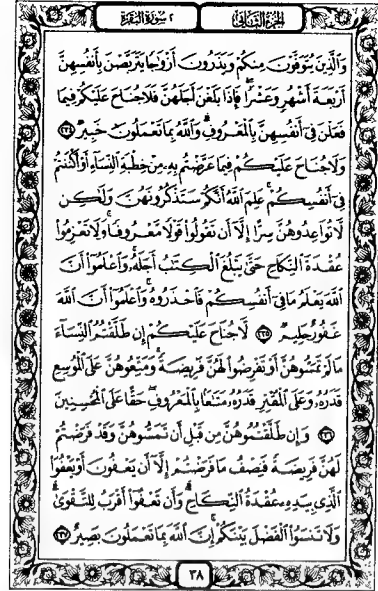 ٢ سورة البقرة
الجزء الثاني
وَالَّذِينَ يُتَوَفَّوْنَ مِنكُمْ وَيَذَرُونَ أَزْوَاجًا يَتَرَبَّصْنَ بِأَنفُسِهِنَّ
أَرْبَعَةَ أَشْهُرٍ وَعَشْرًا ۖ فَإِذَا بَلَغْنَ أَجَلَهُنَّ فَلَا جُنَاحَ عَلَيْكُمْ فِيمَا
فَعَلْنَ فِي أَنفُسِهِنَّ بِالْمَعْرُوفِ ۗ وَاللَّهُ بِمَا تَعْمَلُونَ خَبِيرٌ ٢٣٤
وَلَا جُنَاحَ عَلَيْكُمْ فِيمَا عَرَّضْتُم بِهِ مِنْ خِطْبَةِ النِّسَاءِ أَوْ أَكْنَنتُمْ
فِي أَنفُسِكُمْ ۚ عَلِمَ اللَّهُ أَنَّكُمْ سَتَذْكُرُونَهُنَّ وَلَٰكِن
لَّا تُوَاعِدُوهُنَّ سِرًّا إِلَّا أَن تَقُولُوا قَوْلًا مَّعْرُوفًا ۚ وَلَا تَعْزِمُوا
عُقْدَةَ النِّكَاحِ حَتَّىٰ يَبْلُغَ الْكِتَابُ أَجَلَهُ ۚ وَاعْلَمُوا أَنَّ
اللَّهَ يَعْلَمُ مَا فِي أَنفُسِكُمْ فَاحْذَرُوهُ ۚ وَاعْلَمُوا أَنَّ اللَّهَ
غَفُورٌ حَلِيمٌ ٢٣٥ لَّا جُنَاحَ عَلَيْكُمْ إِن طَلَّقْتُمُ النِّسَاءَ
مَا لَمْ تَمَسُّوهُنَّ أَوْ تَفْرِضُوا لَهُنَّ فَرِيضَةً ۚ وَمَتِّعُوهُنَّ عَلَى الْمُوسِعِ
قَدَرُهُ وَعَلَى الْمُقْتِرِ قَدَرُهُ مَتَاعًا بِالْمَعْرُوفِ ۖ حَقًّا عَلَى الْمُحْسِنِينَ
٢٣٦ وَإِن طَلَّقْتُمُوهُنَّ مِن قَبْلِ أَن تَمَسُّوهُنَّ وَقَدْ فَرَضْتُمْ
لَهُنَّ فَرِيضَةً فَنِصْفُ مَا فَرَضْتُمْ إِلَّا أَن يَعْفُونَ أَوْ يَعْفُوَا
الَّذِي بِيَدِهِ عُقْدَةُ النِّكَاحِ ۚ وَأَن تَعْفُوا أَقْرَبُ لِلتَّقْوَىٰ ۚ
وَلَا تَنسَوُا الْفَضْلَ بَيْنَكُمْ ۚ إِنَّ اللَّهَ بِمَا تَعْمَلُونَ بَصِيرٌ ٢٣٧
٣٨